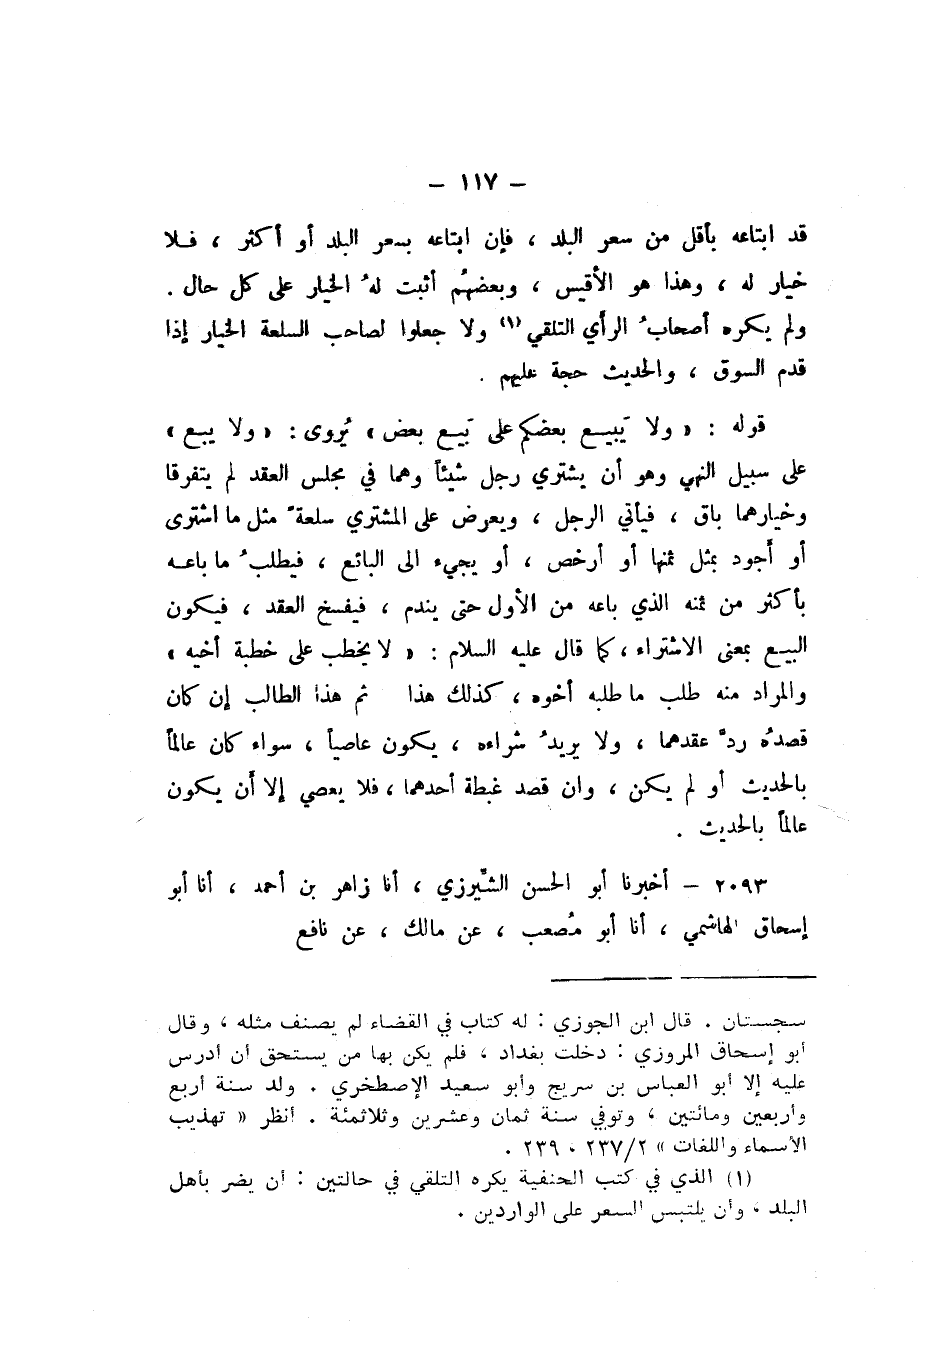 – ١١٧ –
قد ابتاعه بأقل من سعر البلد ، فإن ابتاعه بسعر البلد أو أكثر ، فلا
خيار له ، وهذا هو الأقيس ، وبعضهُم أثبت لهُ الخيار على كل حال .
ولم يكره أصحابُ الرأي التلقي (١) ولا جعلوا لصاحب السلعة الخيار إذا
قدم السوق ، والحديث حجة عليهم .
قوله : « ولا يَبيع بعضكم على بَيع بعض » يُروى : « ولا يبع »
على سبيل النهي وهو أن يشتري رجل شيئاً وهما في مجلس العقد لم يتفرقا
وخيارهما باق ، فيأتي الرجل ، ويعرض على المشتري سلعةً مثل ما اشترى
أو أجود بمثل ثمنها أو أرخص ، أو يجيء الى البائع ، فيطلبُ ما باعه
بأكثر من ثمنه الذي باعه من الأول حتى يندم ، فيفسخ العقد ، فيكون
البيع بمعنى الاشتراء ، كما قال عليه السلام : « لا يخطب على خطبة أخيه »
والمراد منه طلب ما طلبه أخوه ، كذلك هذا ثم هذا الطالب إن كان
قصدُه ردَّ عقدهما ، ولا يريدُ شراءه ، يكون عاصياً ، سواء كان عالماً
بالحديث أو لم يكن ، وان قصد غبطة أحدهما ، فلا يعصي إلا أن يكون
عالماً بالحديث .
٢٠٩٣ – أخبرنا أبو الحسن الشَّيرزي ، أنا زاهر بن أحمد ، أنا أبو
إسحاق الهاشمي ، أنا أبو مُصعب ، عن مالك ، عن نافع
سجستان . قال ابن الجوزي : له كتاب في القضاء لم يصنف مثله ، وقال
أبو إسحاق المروزي : دخلت بغداد ، فلم يكن بها من يستحق أن أدرس
عليه إلا أبو العباس بن سريج وأبو سعيد الإصطخري . ولد سنة أربع
وأربعين ومائتين ، وتوفي سنة ثمان وعشرين وثلاثمئة . أنظر « تهذيب
الأسماء واللغات » ٢/٢٣٧ ، ٢٣٩ .
(١) الذي في كتب الحنفية يكره التلقي في حالتين : أن يضر بأهل
البلد ، وأن يلتبس السعر على الواردين .